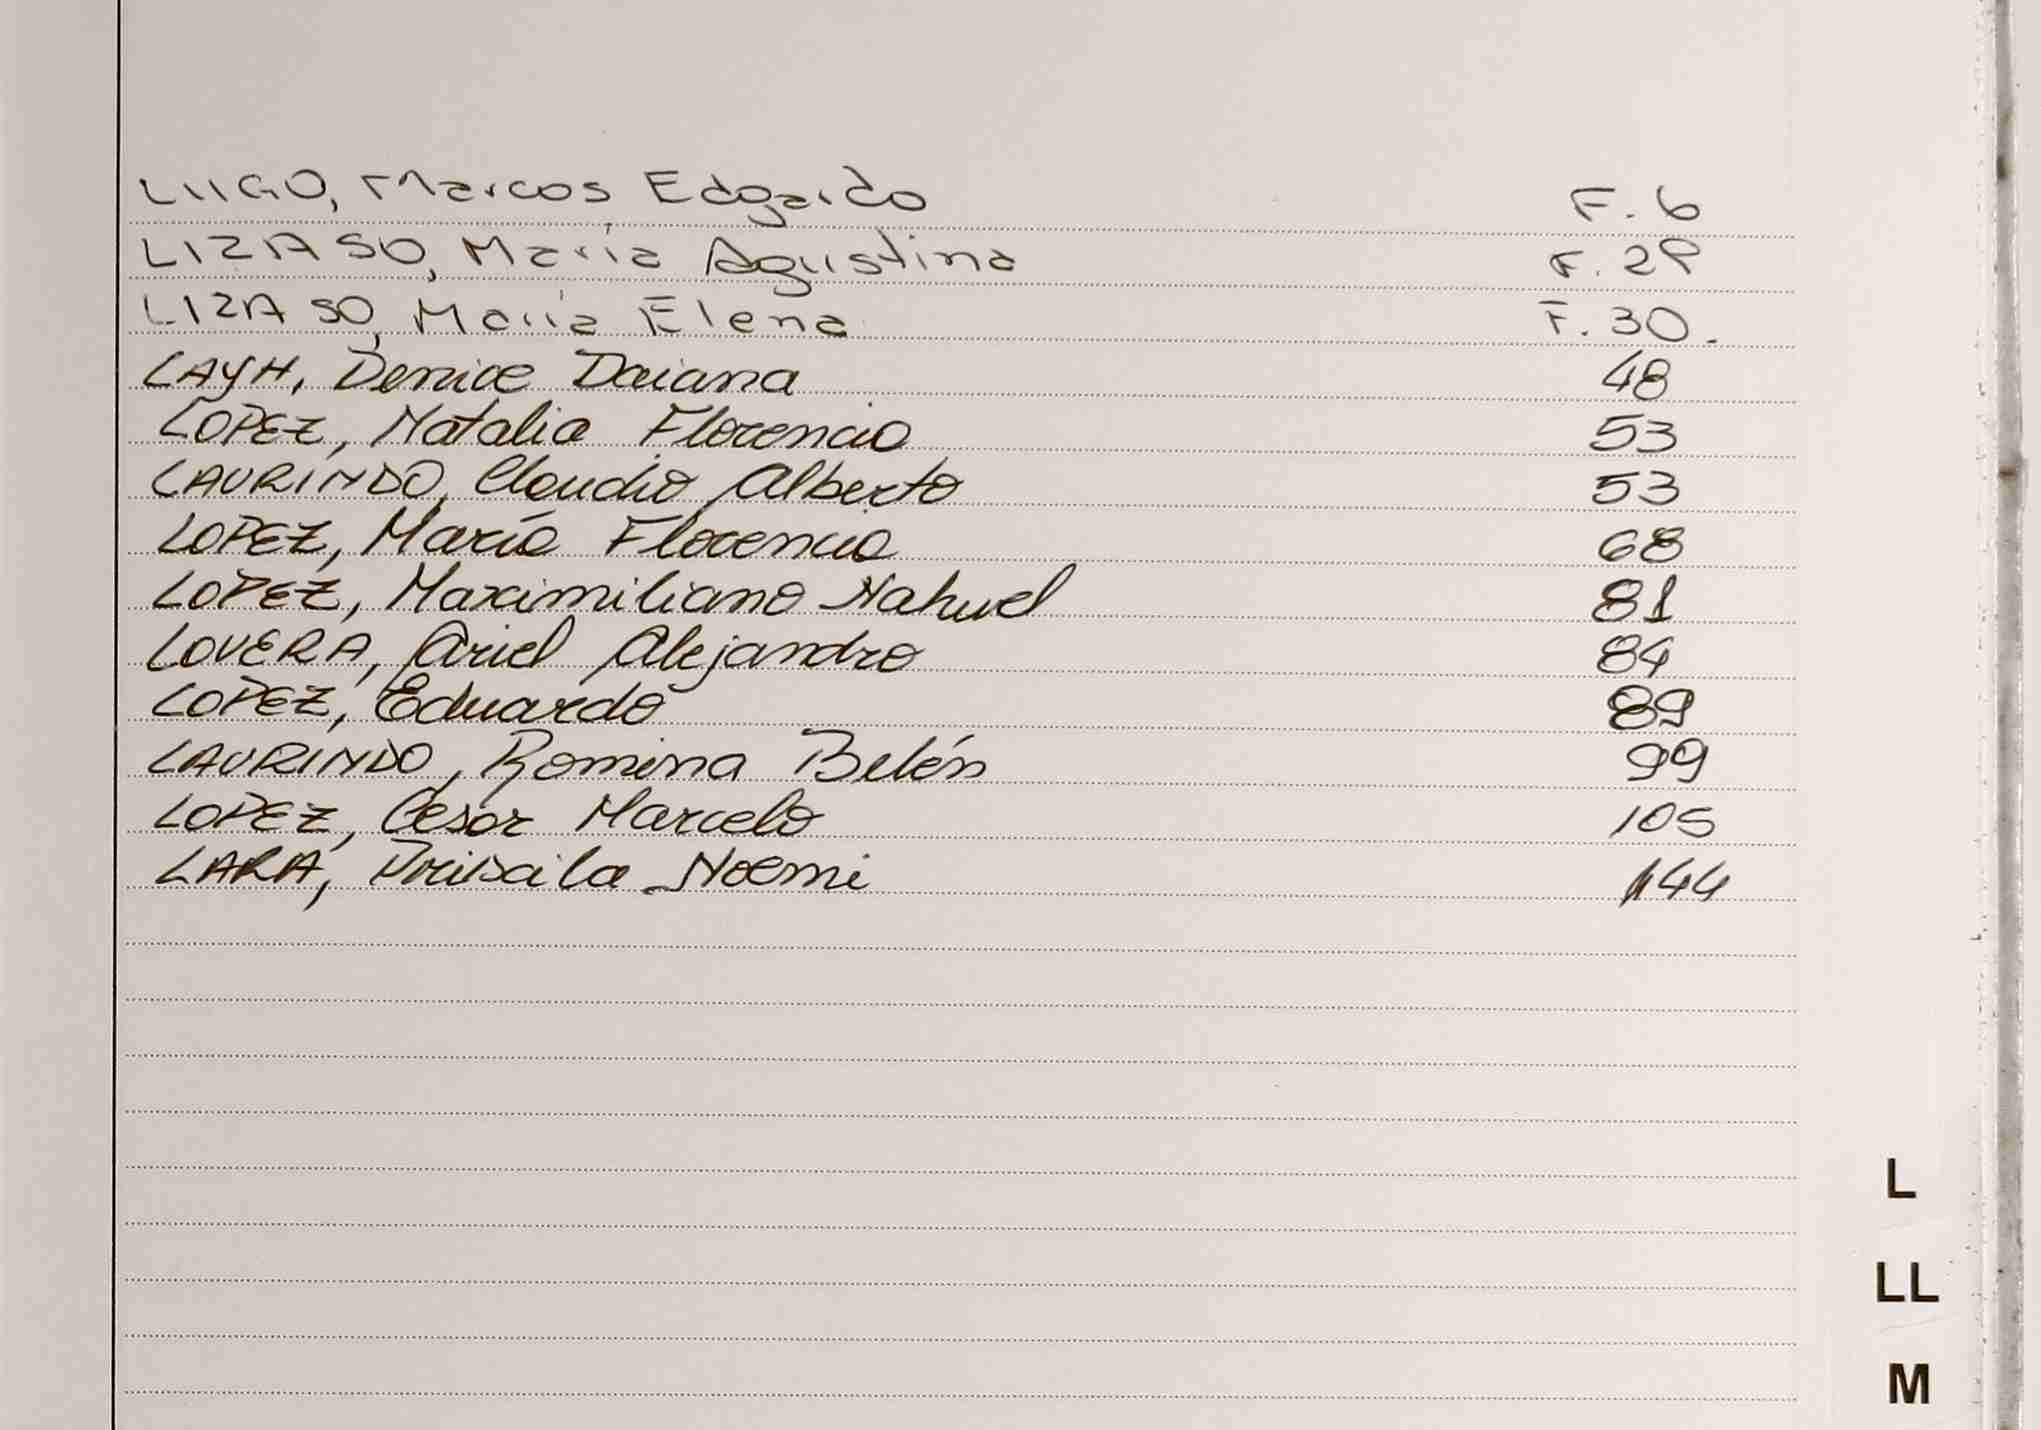 LUGO, Marcos Edgardo F. 6
LIZASO, María Agustina F. 29
LIZASO, María Elena F. 30.
LAYH, Denice Daiana 48
LOPEZ, Natalia Florencia 53
LAURINDO, Claudio Alberto 53
LOPEZ, María Florencia 68
LOPEZ, Maximiliano Nahuel 81
LOVERA, Ariel Alejandro 84
LOPEZ, Eduardo 89
LAURINDO, Romina Belén 99
LOPEZ, Cesar Marcelo 105
LARA, Priscila Noemi 144
L
LL
M